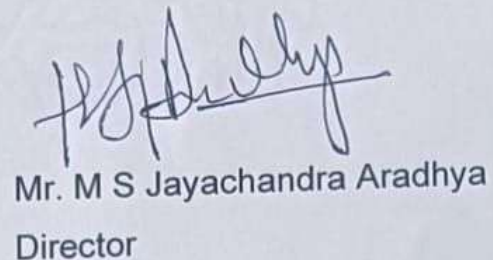 Mr. M S Jayachandra Aradhya
Director